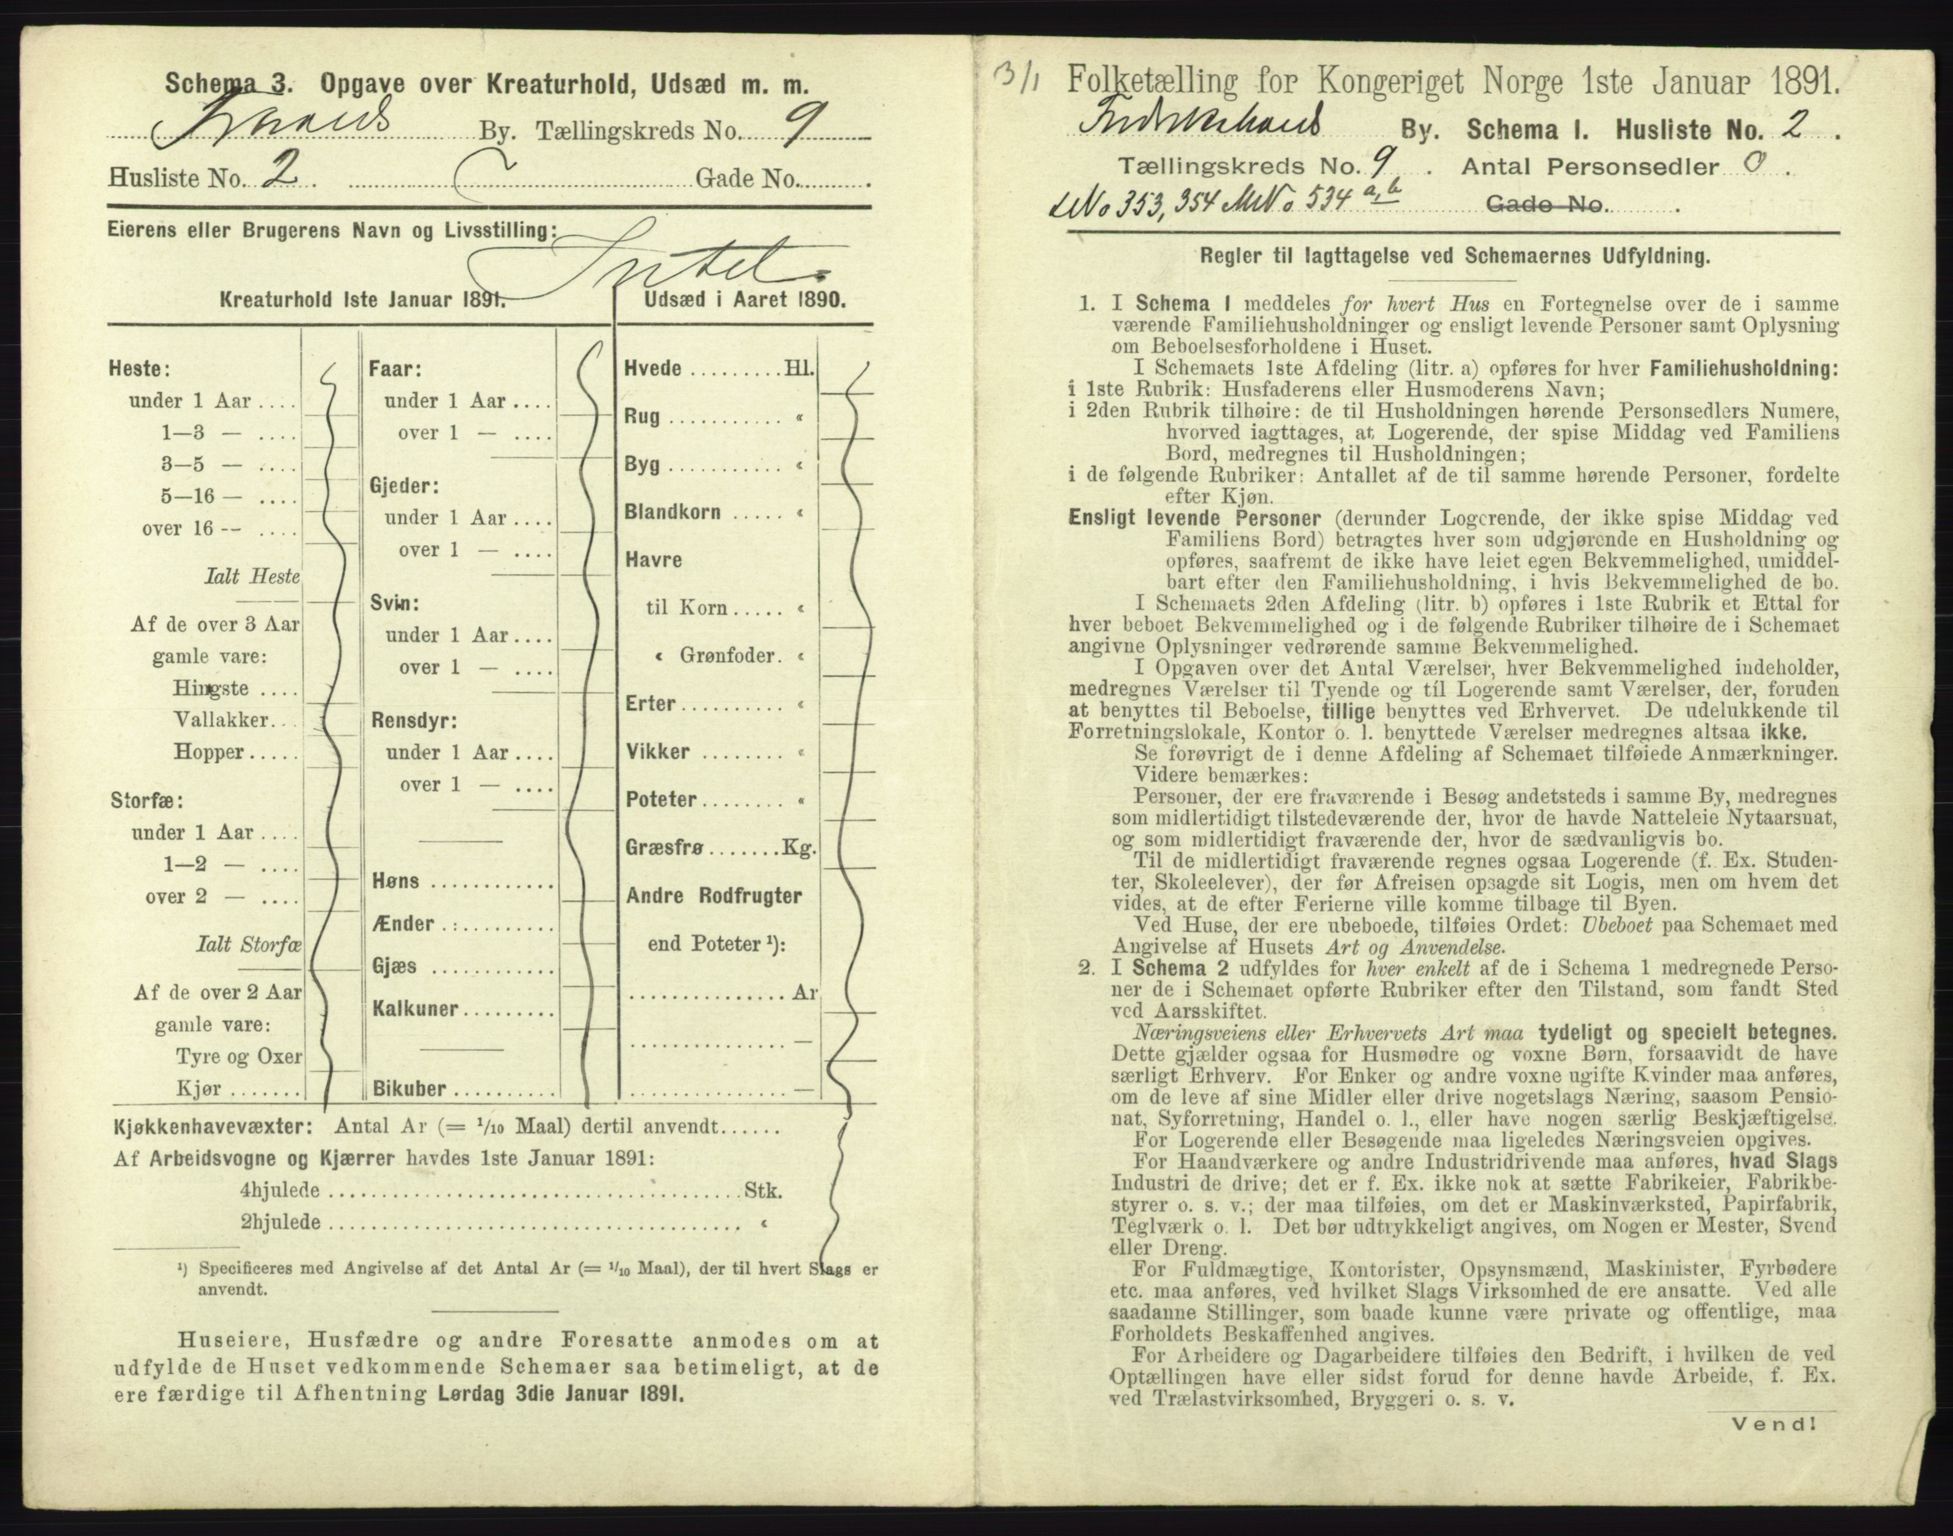 Schema 3. Opgave over Kreaturhold, Udsæd m. m.
By. Tællingskreds No. 9
Husliste No. 2. Gade No. .
Eierens eller Brugerens Navn og Livsstilling:
Intet.
Kreaturhold 1ste Januar 1891.
Heste:
under 1 Aar ....
1—3 — ....
3—5 — ....
5—16 — ....
over 16 — ....
Ialt Heste
Af de over 3 Aar
gamle vare:
Hingste ....
Vallakker...
Hopper.....
Storfæ:
under 1 Aar ....
1—2 — ....
over 2 — ....
Ialt Storfæ
Af de over 2 Aar
gamle vare:
Tyre og Oxer
Kjør .......
Faar:
under 1 Aar ....
over 1 — ....
Gjeder:
under 1 Aar ....
over 1 — ....
Svin:
under 1 Aar ....
over 1 — ....
Rensdyr:
under 1 Aar ....
over 1 — ....
Høns ............
Ænder ..........
Gjæs ............
Kalkuner.........
Bikuber ..........
Udsæd i Aaret 1890.
Hvede .........Hl.
Rug ........... «
Byg ........... «
Blandkorn ..... «
Havre
til Korn ..... «
« Grønfoder. «
Erter.......... «
Vikker ........ «
Poteter........ «
Græsfrø.......Kg.
Andre Rodfrugter
end Poteter ¹):
............... Ar
............... —
............... —
Kjøkkenhavevæxter: Antal Ar (= 1/10 Maal) dertil anvendt......
Af Arbeidsvogne og Kjærrer havdes 1ste Januar 1891:
4hjulede ....................................... Stk.
2hjulede ....................................... «
¹) Specificeres med Angivelse af det Antal Ar (= 1/10 Maal), der til hvert Slags er
anvendt.
Huseiere, Husfædre og andre Foresatte anmodes om at
udfylde de Huset vedkommende Schemaer saa betimeligt, at de
ere færdige til Afhentning Lørdag 3die Januar 1891.
3/1 Folketælling for Kongeriget Norge 1ste Januar 1891.
Fredrikshald By. Schema I. Husliste No. 2 .
Tællingskreds No. 9 . Antal Personsedler 0 .
No 353, 354 MNo 534 a,b Gade No. .
Regler til Iagttagelse ved Schemaernes Udfyldning.
1. I Schema I meddeles for hvert Hus en Fortegnelse over de i samme
værende Familiehusholdninger og ensligt levende Personer samt Oplysning
om Beboelsesforholdene i Huset.
I Schemaets 1ste Afdeling (litr. a) opføres for hver Familiehusholdning:
i 1ste Rubrik: Husfaderens eller Husmoderens Navn;
i 2den Rubrik tilhøire: de til Husholdningen hørende Personsedlers Numere,
hvorved iagttages, at Logerende, der spise Middag ved Familiens
Bord, medregnes til Husholdningen;
i de følgende Rubriker: Antallet af de til samme hørende Personer, fordelte
efter Kjøn.
Ensligt levende Personer (derunder Logerende, der ikke spise Middag ved
Familiens Bord) betragtes hver som udgjørende en Husholdning og
opføres, saafremt de ikke have leiet egen Bekvemmelighed, umiddel-
bart efter den Familiehusholdning, i hvis Bekvemmelighed de bo.
I Schemaets 2den Afdeling (litr. b) opføres i 1ste Rubrik et Ettal for
hver beboet Bekvemmelighed og i de følgende Rubriker tilhøire de i Schemaet
angivne Oplysninger vedrørende samme Bekvemmelighed.
I Opgaven over det Antal Værelser, hver Bekvemmelighed indeholder,
medregnes Værelser til Tyende og til Logerende samt Værelser, der, foruden
at benyttes til Beboelse, tillige benyttes ved Erhvervet. De udelukkende til
Forretningslokale, Kontor o. l. benyttede Værelser medregnes altsaa ikke.
Se forøvrigt de i denne Afdeling af Schemaet tilføiede Anmærkninger.
Videre bemærkes:
Personer, der ere fraværende i Besøg andetsteds i samme By, medregnes
som midlertidigt tilstedeværende der, hvor de havde Natteleie Nytaarsnat,
og som midlertidigt fraværende der, hvor de sædvanligvis bo.
Til de midlertidigt fraværende regnes ogsaa Logerende (f. Ex. Studen-
ter, Skoleelever), der før Afreisen opsagde sit Logis, men om hvem det
vides, at de efter Ferierne ville komme tilbage til Byen.
Ved Huse, der ere ubeboede, tilføies Ordet: Ubeboet paa Schemaet med
Angivelse af Husets Art og Anvendelse.
2. I Schema 2 udfyldes for hver enkelt af de i Schema 1 medregnede Perso-
ner de i Schemaet opførte Rubriker efter den Tilstand, som fandt Sted
ved Aarsskiftet.
Næringsveiens eller Erhvervets Art maa tydeligt og specielt betegnes.
Dette gjælder ogsaa for Husmødre og voxne Børn, forsaavidt de have
særligt Erhverv. For Enker og andre voxne ugifte Kvinder maa anføres,
om de leve af sine Midler eller drive nogetslags Næring, saasom Pensio-
nat, Syforretning, Handel o. l., eller have nogen særlig Beskjæftigelse.
For Logerende eller Besøgende maa ligeledes Næringsveien opgives.
For Haandværkere og andre Industridrivende maa anføres, hvad Slags
Industri de drive; det er f. Ex. ikke nok at sætte Fabrikeier, Fabrikbe-
styrer o. s. v.; der maa tilføies, om det er Maskinværksted, Papirfabrik,
Teglværk o. l. Det bør udtrykkeligt angives, om Nogen er Mester, Svend
eller Dreng.
For Fuldmægtige, Kontorister, Opsynsmænd, Maskinister, Fyrbødere
etc. maa anføres, ved hvilket Slags Virksomhed de ere ansatte. Ved alle
saadanne Stillinger, som baade kunne være private og offentlige, maa
Forholdets Beskaffenhed angives.
For Arbeidere og Dagarbeidere tilføies den Bedrift, i hvilken de ved
Optællingen have eller sidst forud for denne havde Arbeide, f. Ex.
ved Trælastvirksomhed, Bryggeri o. s. v.
Vend!